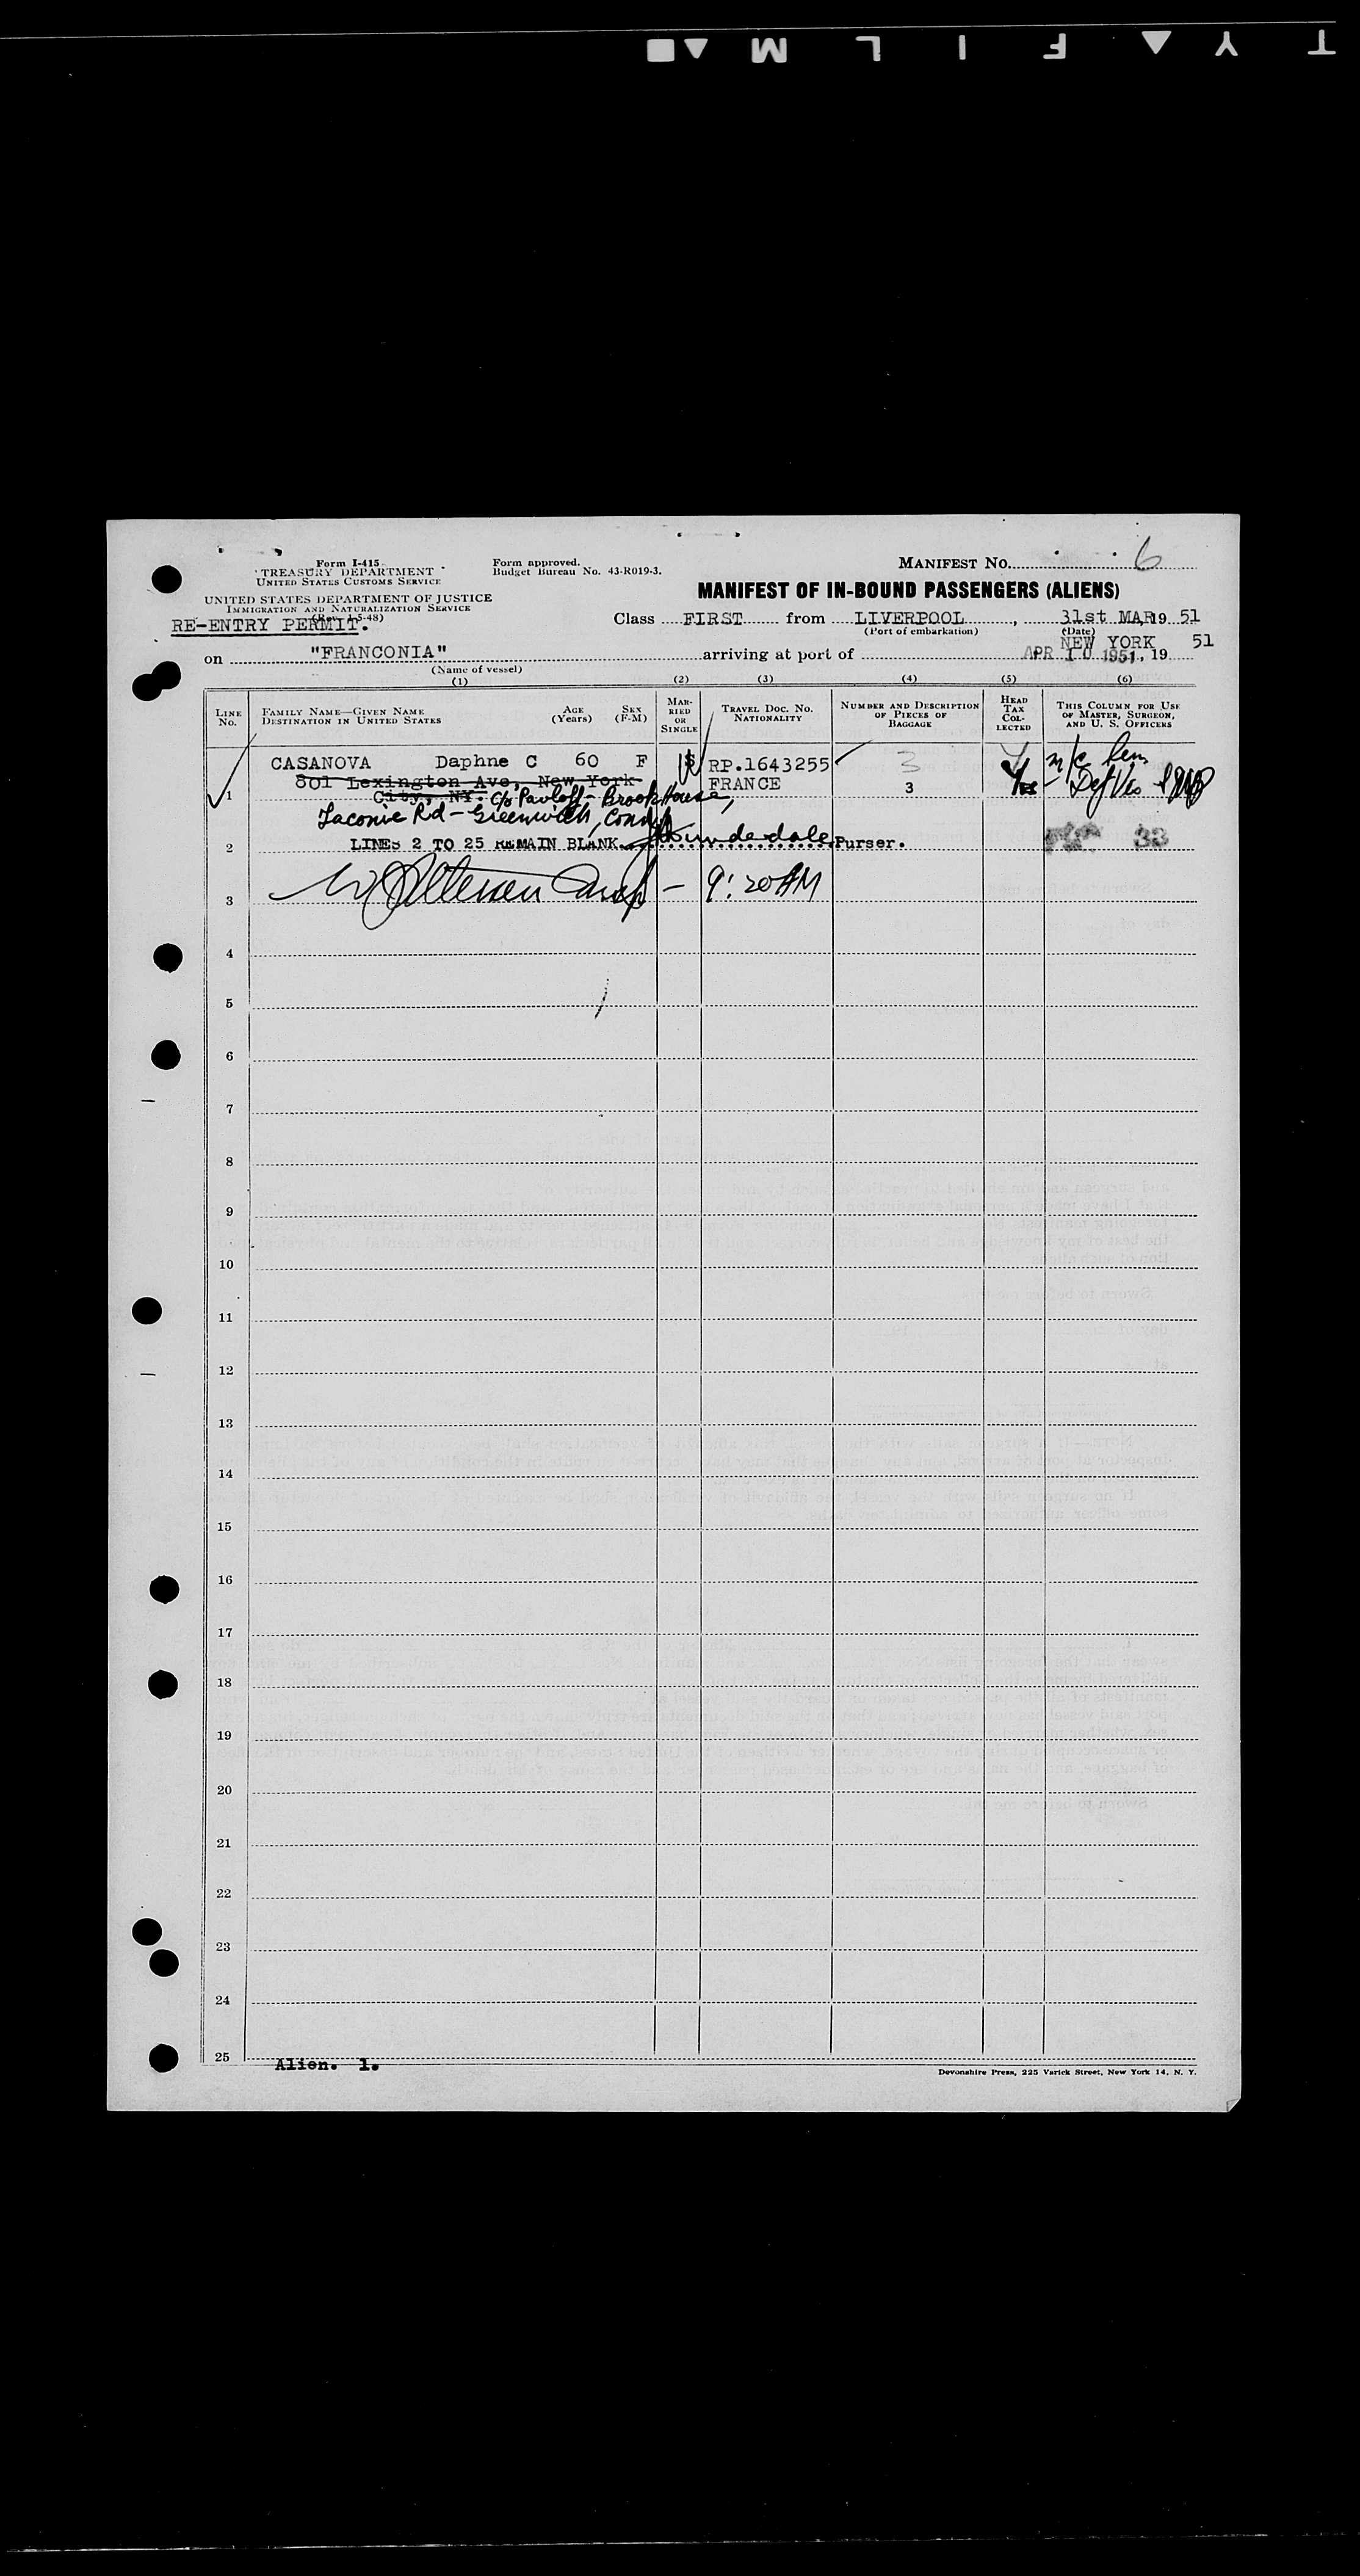 Form I-415
TREASURY DEPARTMENT
UNITED STATES CUSTOMS SERVICE
UNITED STATES DEPARTMENT OF JUSTICE
IMMIGRATION AND NATURALIZATION SERVICE
(Rev. 1-5-48)
RE-ENTRY PERMIT.
Form approved.
Budget Bureau No. 43-R019-3.
MANIFEST No. 6
MANIFEST OF IN-BOUND PASSENGERS (ALIENS)
Class FIRST from LIVERPOOL, 31st MAR 19 51
(Port of embarkation) (Date)
on "FRANCONIA" arriving at port of NEW YORK APR 10 1951, 19 51
(Name of vessel)
(1) (2) (3) (4) (5) (6)
LINE No.
FAMILY NAME—GIVEN NAME
DESTINATION IN UNITED STATES
AGE (Years)
SEX (F-M)
MARRIED OR SINGLE
TRAVEL DOC. NO.
NATIONALITY
NUMBER AND DESCRIPTION OF PIECES OF BAGGAGE
HEAD TAX COLLECTED
THIS COLUMN FOR USE OF MASTER, SURGEON, AND U. S. OFFICERS
1 CASANOVA Daphne C 60 F RP.1643255 3
801 Lexington Ave, New York FRANCE 3
City, NY. c/o Pavloff - Brook House,
Taconic Rd - Greenwich, Conn
2 LINES 2 TO 25 REMAIN BLANK. Purser. 33
3 — 9:20 AM
4
5
6
7
8
9
10
11
12
13
14
15
16
17
18
19
20
21
22
23
24
25
Alien. 1.
Devonshire Press, 225 Varick Street, New York 14, N. Y.